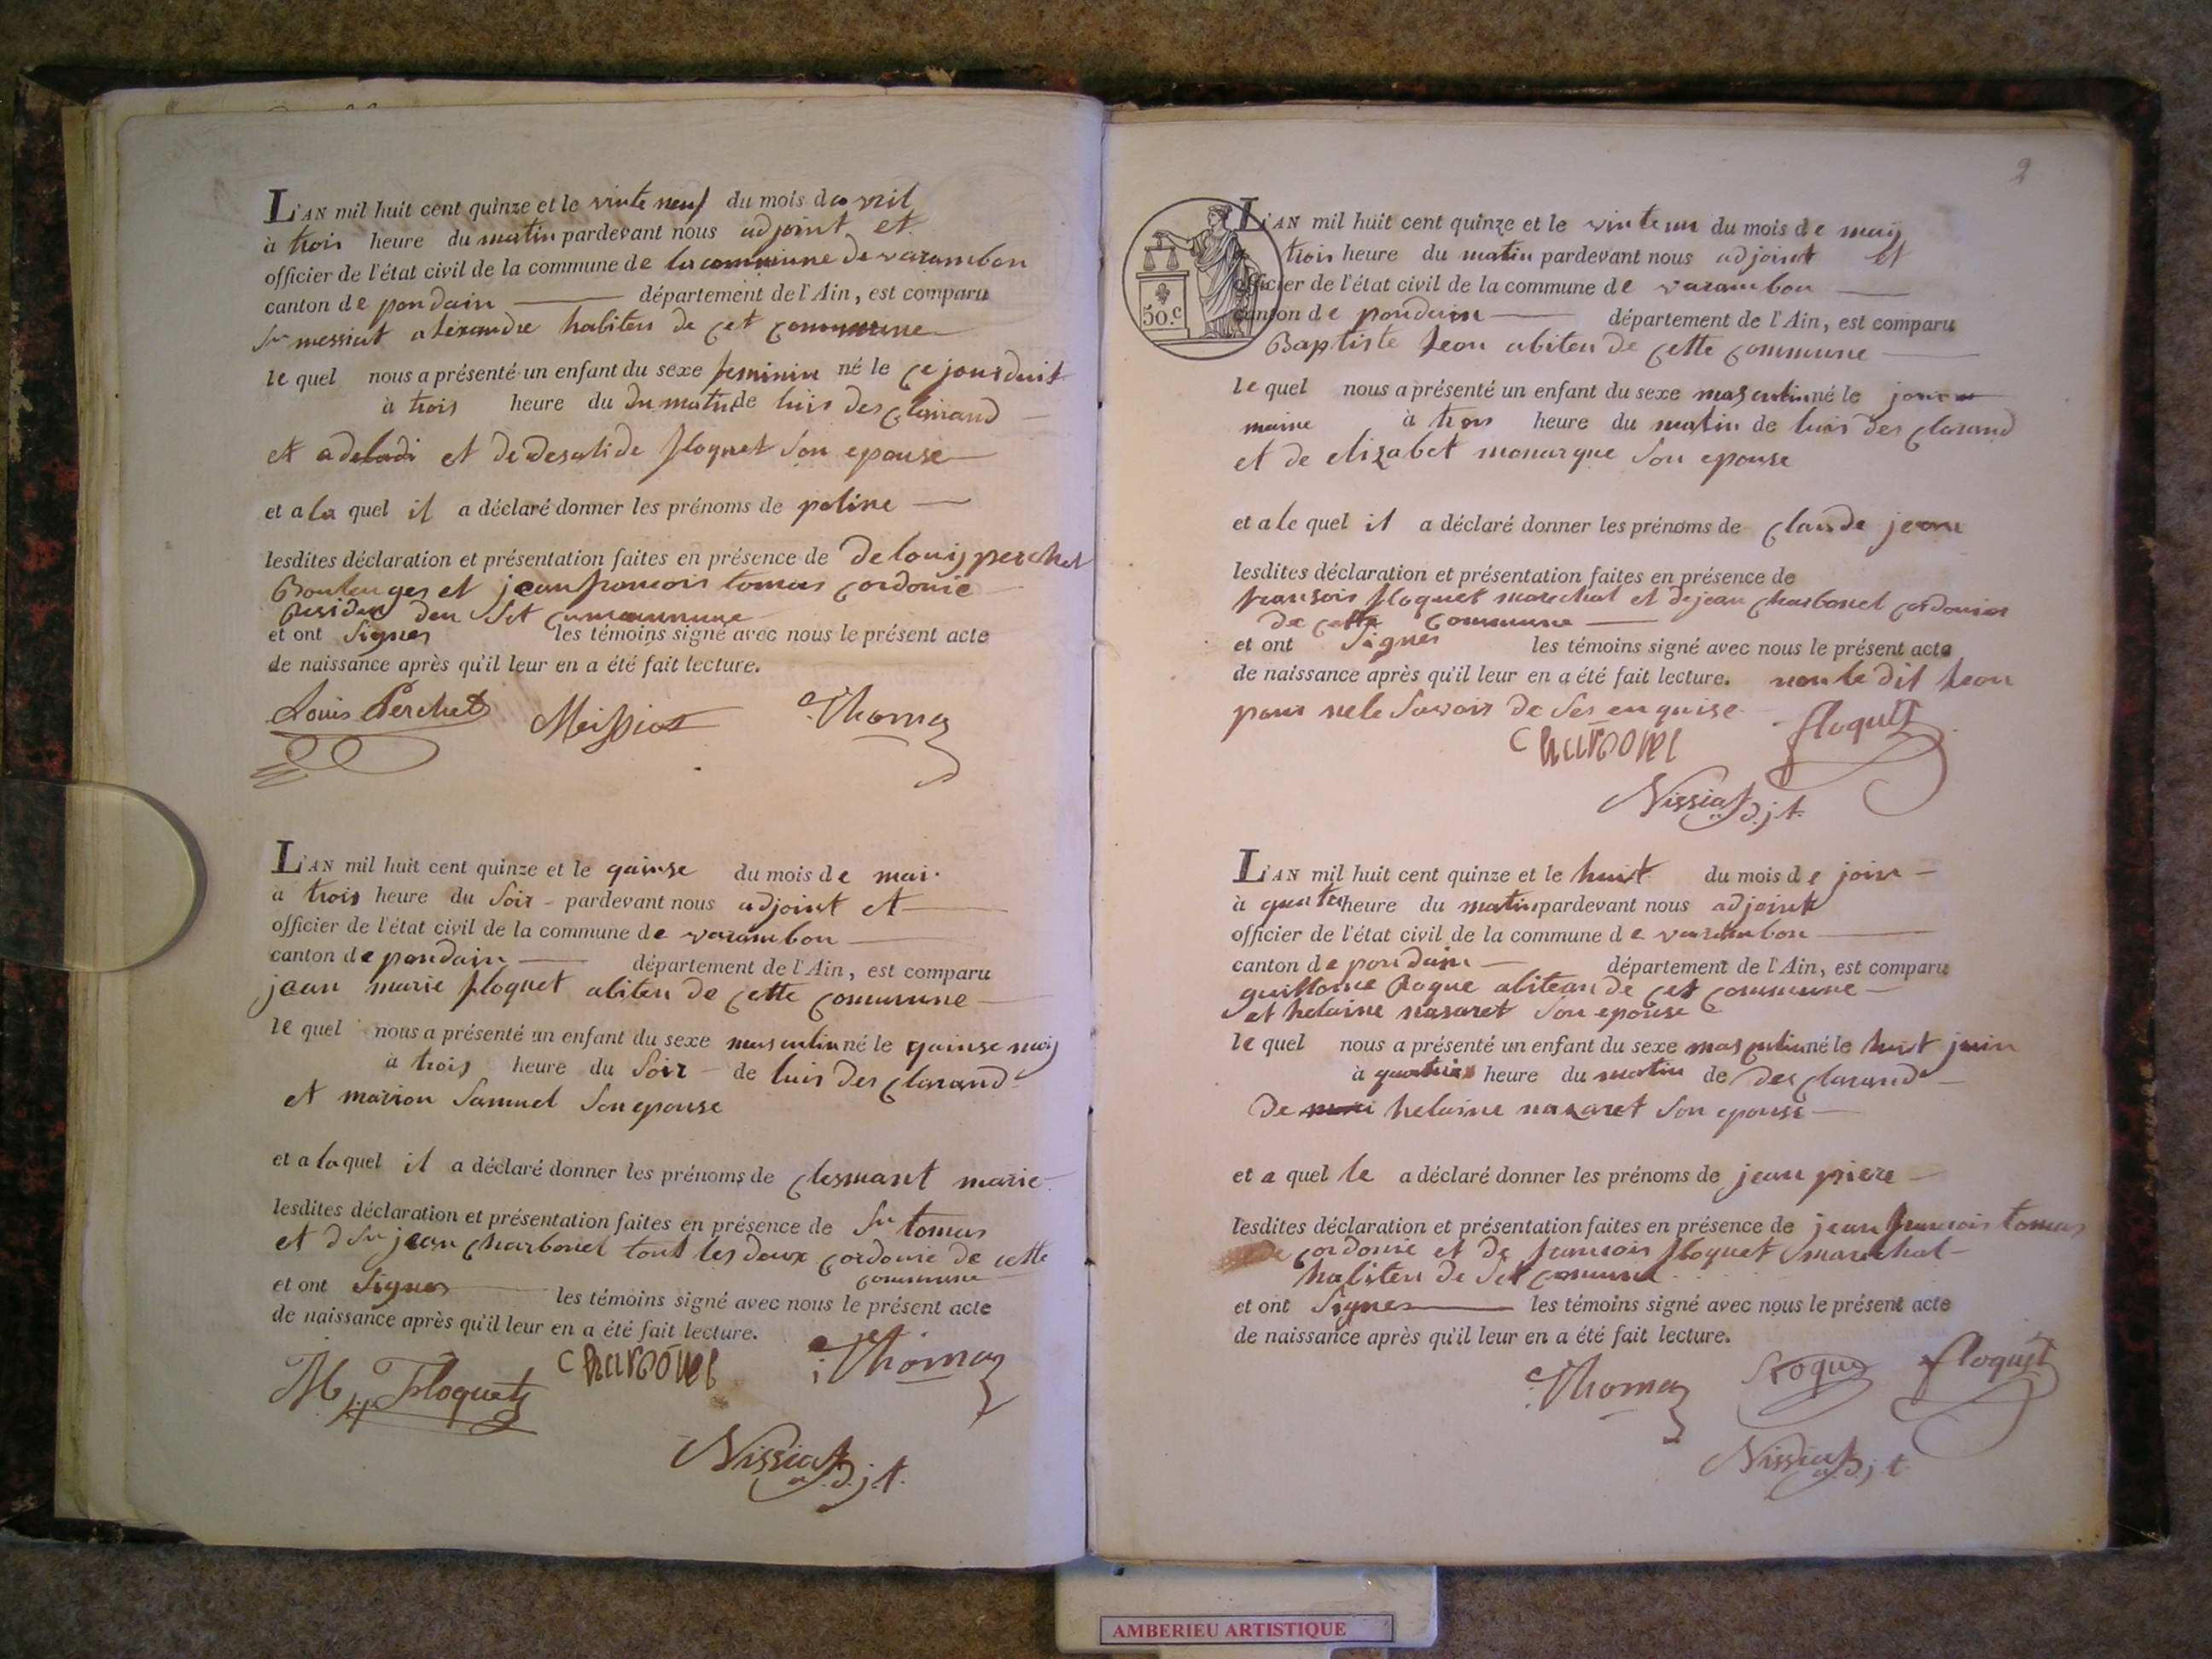 L'AN mil huit cent quinze et le vinte neuf du mois davril
à trois heure du matin pardevant nous adjoint et
officier de l'état civil de la commune de la commune de varambon
canton de pondain département de l'Ain, est comparu
Sr messiat alexandre habiten de cet commune
le quel nous a présenté un enfant du sexe feminin né le ce jourduit
à trois heure du du matin de luis des clairand
et adeladi et de floquet son epouse
et a la quel il a déclaré donner les prénoms de poline
lesdites déclaration et présentation faites en présence de de louis perchet
Boulenges et jean francois tomas cordonie
den set commune
et ont signes les témoins signé avec nous le présent acte
de naissance après qu'il leur en a été fait lecture.
Louis Perchet Messiat Thomas
L'AN mil huit cent quinze et le quinse du mois de mai
à trois heure du soir pardevant nous adjoint et
officier de l'état civil de la commune de varambon
canton de pondain département de l'Ain, est comparu
jean marie floquet abiten de cette commune
le quel nous a présenté un enfant du sexe masculin né le quinse may
à trois heure du soir de luis des clarand
et marion samuel son epouse
et a la quel il a déclaré donner les prénoms de clesmant marie
lesdites déclaration et présentation faites en présence de Sr tomas
et d Sr jean charbonel tout les deux cordonie de cette
commune
et ont signes les témoins signé avec nous le présent acte
de naissance après qu'il leur en a été fait lecture.
Floquet charbonel Thomas
Nissiat adjt.
2
50.c
L'AN mil huit cent quinze et le vinteun du mois de may
trois heure du matin pardevant nous adjoint et
officier de l'état civil de la commune de varambon
canton de pondain département de l'Ain, est comparu
Baptiste feon abiten de cette commune
le quel nous a présenté un enfant du sexe masculin né le jour
maime à trois heure du matin de luis des clarand
et de elizabet monarque son epouse
et a le quel il a déclaré donner les prénoms de claude jean
lesdites déclaration et présentation faites en présence de
fransois floquet marechal et de jean charbonel cordonier
de cette commune
et ont signes les témoins signé avec nous le présent acte
de naissance après qu'il leur en a été fait lecture. non le dit feon
pour ne le savoir de ses enquise
charbonel floquet
Nissiat adjt.
L'AN mil huit cent quinze et le huit du mois de join
à quatre heure du matin pardevant nous adjoint
officier de l'état civil de la commune de varambon
canton de pondain département de l'Ain, est comparu
guillome Roque abitean de cet commune
et helaine nasaret son epouse
le quel nous a présenté un enfant du sexe masculin né le huit juin
à quatre heure du matin de des clarand
de helaine nazaret son epouse
et a quel le a déclaré donner les prénoms de jean piere
lesdites déclaration et présentation faites en présence de jean francois tomas
de cordonie et de francois floquet marechal
habiten de set comune
et ont signes les témoins signé avec nous le présent acte
de naissance après qu'il leur en a été fait lecture.
Thomas Roque floquet
Nissiat adjt
AMBERIEU ARTISTIQUE